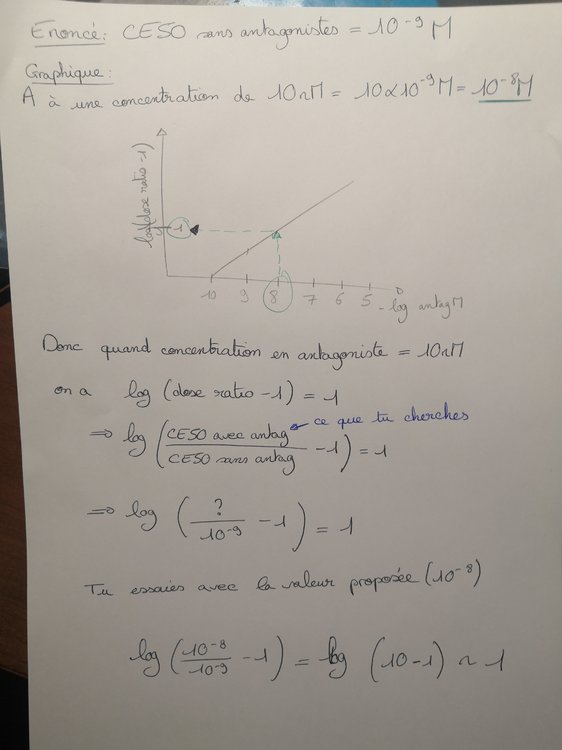 Enoncé: CE50 sans antagonistes = 10⁻⁹ M
Graphique:
A à une concentration de 10nM = 10×10⁻⁹M = 10⁻⁸M
log(dose ratio -1)
1
10 9 8 7 6 5 -log antag M
Donc quand concentration en antagoniste = 10nM
on a log (dose ratio -1) = 1
ce que tu cherches
⇒ log (CE50 avec antag / CE50 sans antag -1) = 1
⇒ log (? / 10⁻⁹ -1) = 1
Tu essaies avec la valeur proposée (10⁻⁸)
log (10⁻⁸ / 10⁻⁹ -1) = log (10-1) ~ 1